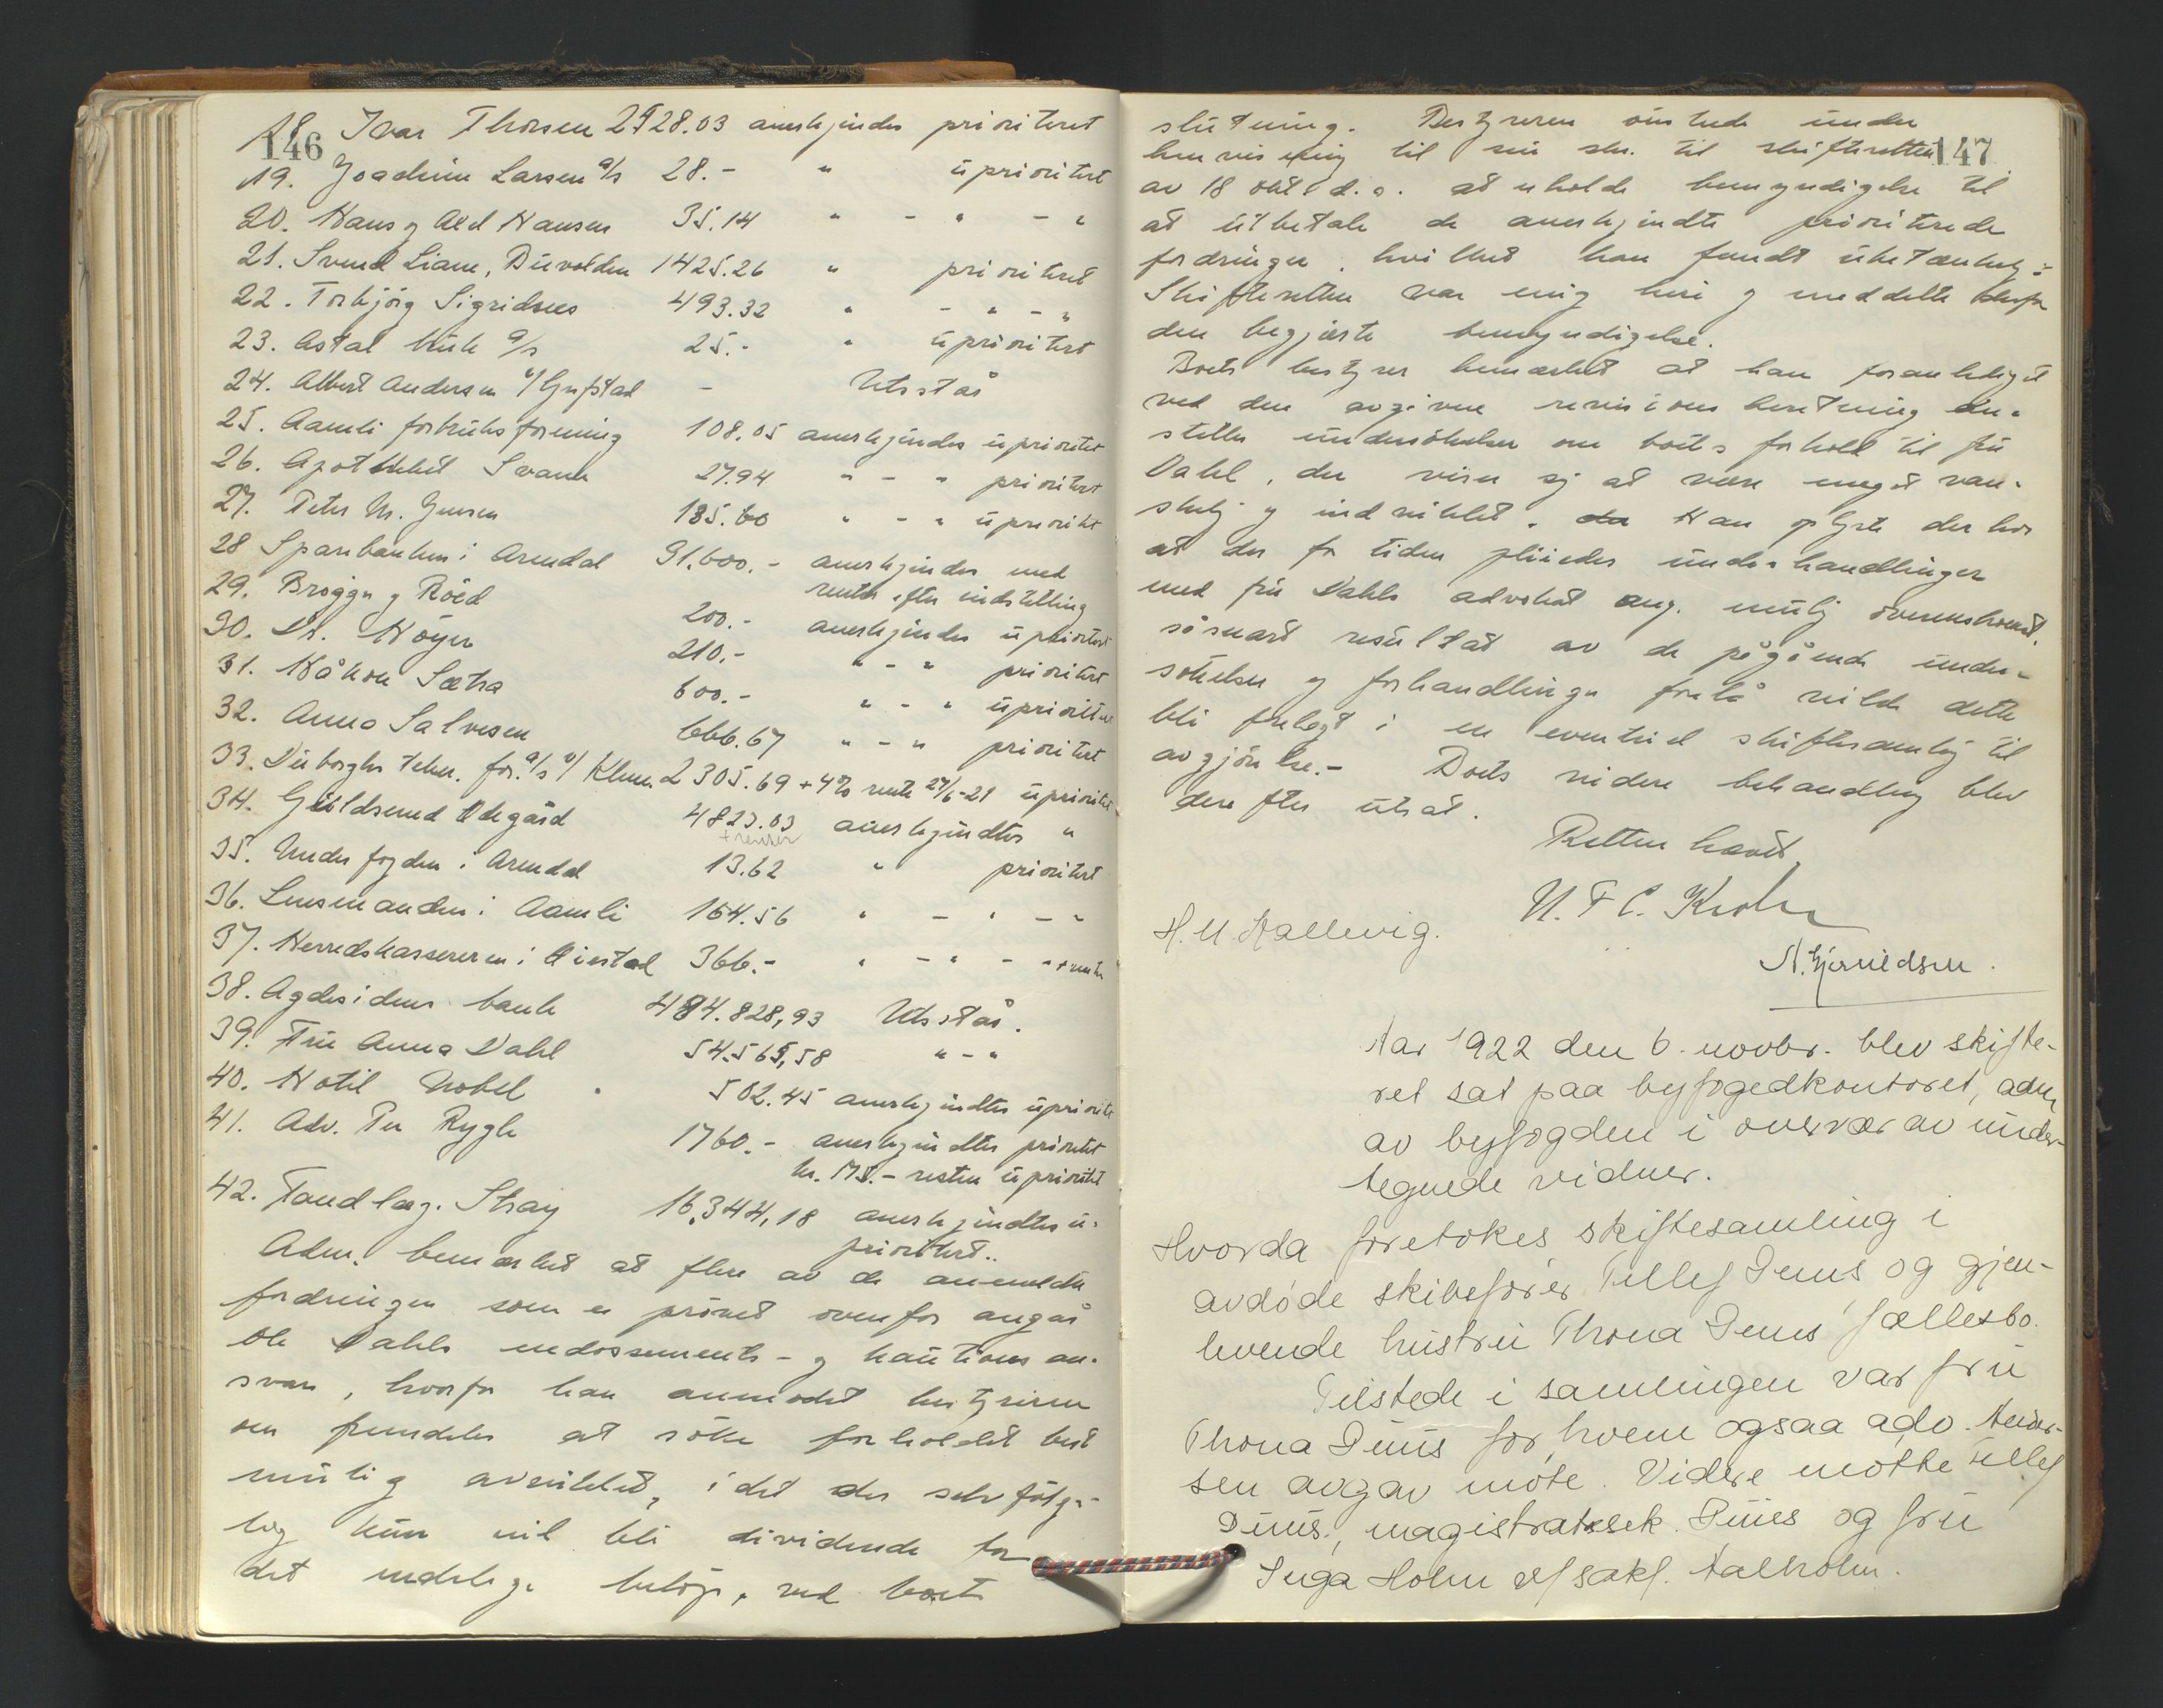 146
18. Ivar Thorsen 2928.03 anerkjendes prioritert
19. Joachim Larsen a/s 28.- " uprioritert
20. Hans og Axel Hansen 35.14 " - " - "
21. Svend Liane, 1425.26 " prioritert
22. Torbjörg Sigridsnes 493.32 " - " - "
23. Astal bruk a/s 25.- " uprioritert
24. Albert Andersen - Utstår
25. Aamli forbruksforening 108.05 anerkjendes uprioritert
26. Apotheket Svane 27.94 " - " prioritert
27. Peter M. Jensen 185.60 " - " uprioritert
28 Sparebanken i Arendal 91.600.- anerkjendes med
renter efter indstilling
29. Brygger Röed 200.- anerkjendes uprioritert
30. Dr. Höyer 210.- " - " prioritert
31. Håkon Sætra 600.- " - " uprioritert
32. Anna Salvesen 666.67 " - " prioritert
33. tekn. for. a/s v/ 2305.69 + 4% rente 27/6-21 uprioritert
34. Guldsmed Ödegård 4823.03 anerkjendtes "
+ renter
35. Underfogden i Arendal 13.62 " prioritert
36. Lensmanden i Aamli 164.56 " - " - "
37. Herredskassereren i Öiestad 366.- " - " - " + renter
38. Agdesidens bank 484.828,93 Utstår.
39. Fru Anna Dahl 54.565,58 " - "
40. Hotil Nobel 502.45 anerkjendtes uprioritert
41. Adv. Per Rygh 1760.- anerkjendtes prioritert
kr. 175.- resten uprioritert
42. Tandlæg. Stray 16.344,18 anerkjendtes u-
prioritert..
Adm. bemærket at flere av de anmeldte
fordringer som er prövet ovenfor angår
Ole Dahls endossements- og kautions an-
svar, hvorfor han anmodet bestyreren
om fremdeles at söke forholdet best
mulig avviklet, idet der selvfölge-
lig kun vil bli dividende for
det endelige belöp, ved boets
147
slutning. Bestyreren önskede under
henvisning til sin skr. til skifteretten
av 18 okt. d.å. at erholde bemyndigelse til
at utbetale de anerkjendte prioriterede
fordringer, hvilket han fandt ubetænkelig.
Skifteretten var enig heri og meddelte
den begjærte bemyndigelse.
Boets bestyrer bemærket at han foranlediget
ved den avgivne revisions beretning an-
stiller undersökelser om boets forhold til fru
Dahl, der viser sig at være meget van-
skelig og indviklet. Han oplyste derhos
at der for tiden pleiedes underhandlinger
med fru Dahls advokat ang. mulig overenskomst.
såsnart resultat av de pågående under-
sökelser og forhandlinger forelå vilde dette
bli forelagt i en eventuel skiftesamling til
avgjörelse.- Boets videre behandling blev
derefter utsat.
Retten hævet,
N. F C. Krohn
H. M. Hallevig.
N. Gjeruldsen.
Aar 1922 den 6. novbr. blev skifte-
ret sat paa byfogedkontoret, adm
av byfogden i overvær av under-
tegnede vidner.
Hvorda foretokes skiftesamling i
avdöde skibsförer Tellef Duus og gjen-
levende hustru Thona Duus' fællesbo.
Tilstede i samlingen var fru
Thona Duus for hvem ogsaa adv.
sen avgav möte. Videre mötte Tellef
Duus, magistratssek. Duus og fru
Inga Holm v/ sakf. Aalholm.